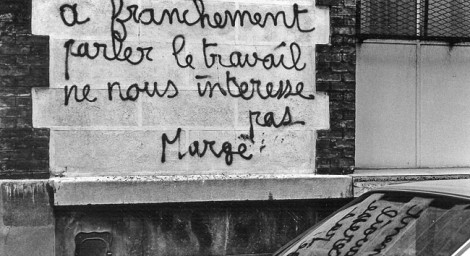 a franchement
parler le travail
ne nous interesse
pas
Marge